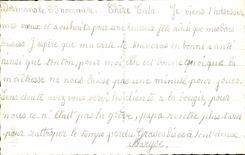 Dimanche 23 novembre. Chère Cata Je viens t'adresser
mes vœux et souhaits pour une bonne fête ainsi que
j'espère que ma carte te trouvera en bonne santé
ainsi que tonton, pour moi elle est bonne quoique la
maîtresse ne nous laisse pas une minute pour jouer.
Sans doute avez vous servi à la bougie, pour
nous ce n'était pas la grève, papa rentre plus tard
pour rattraper le temps perdu. Grosses bises à tout deux
Maryse